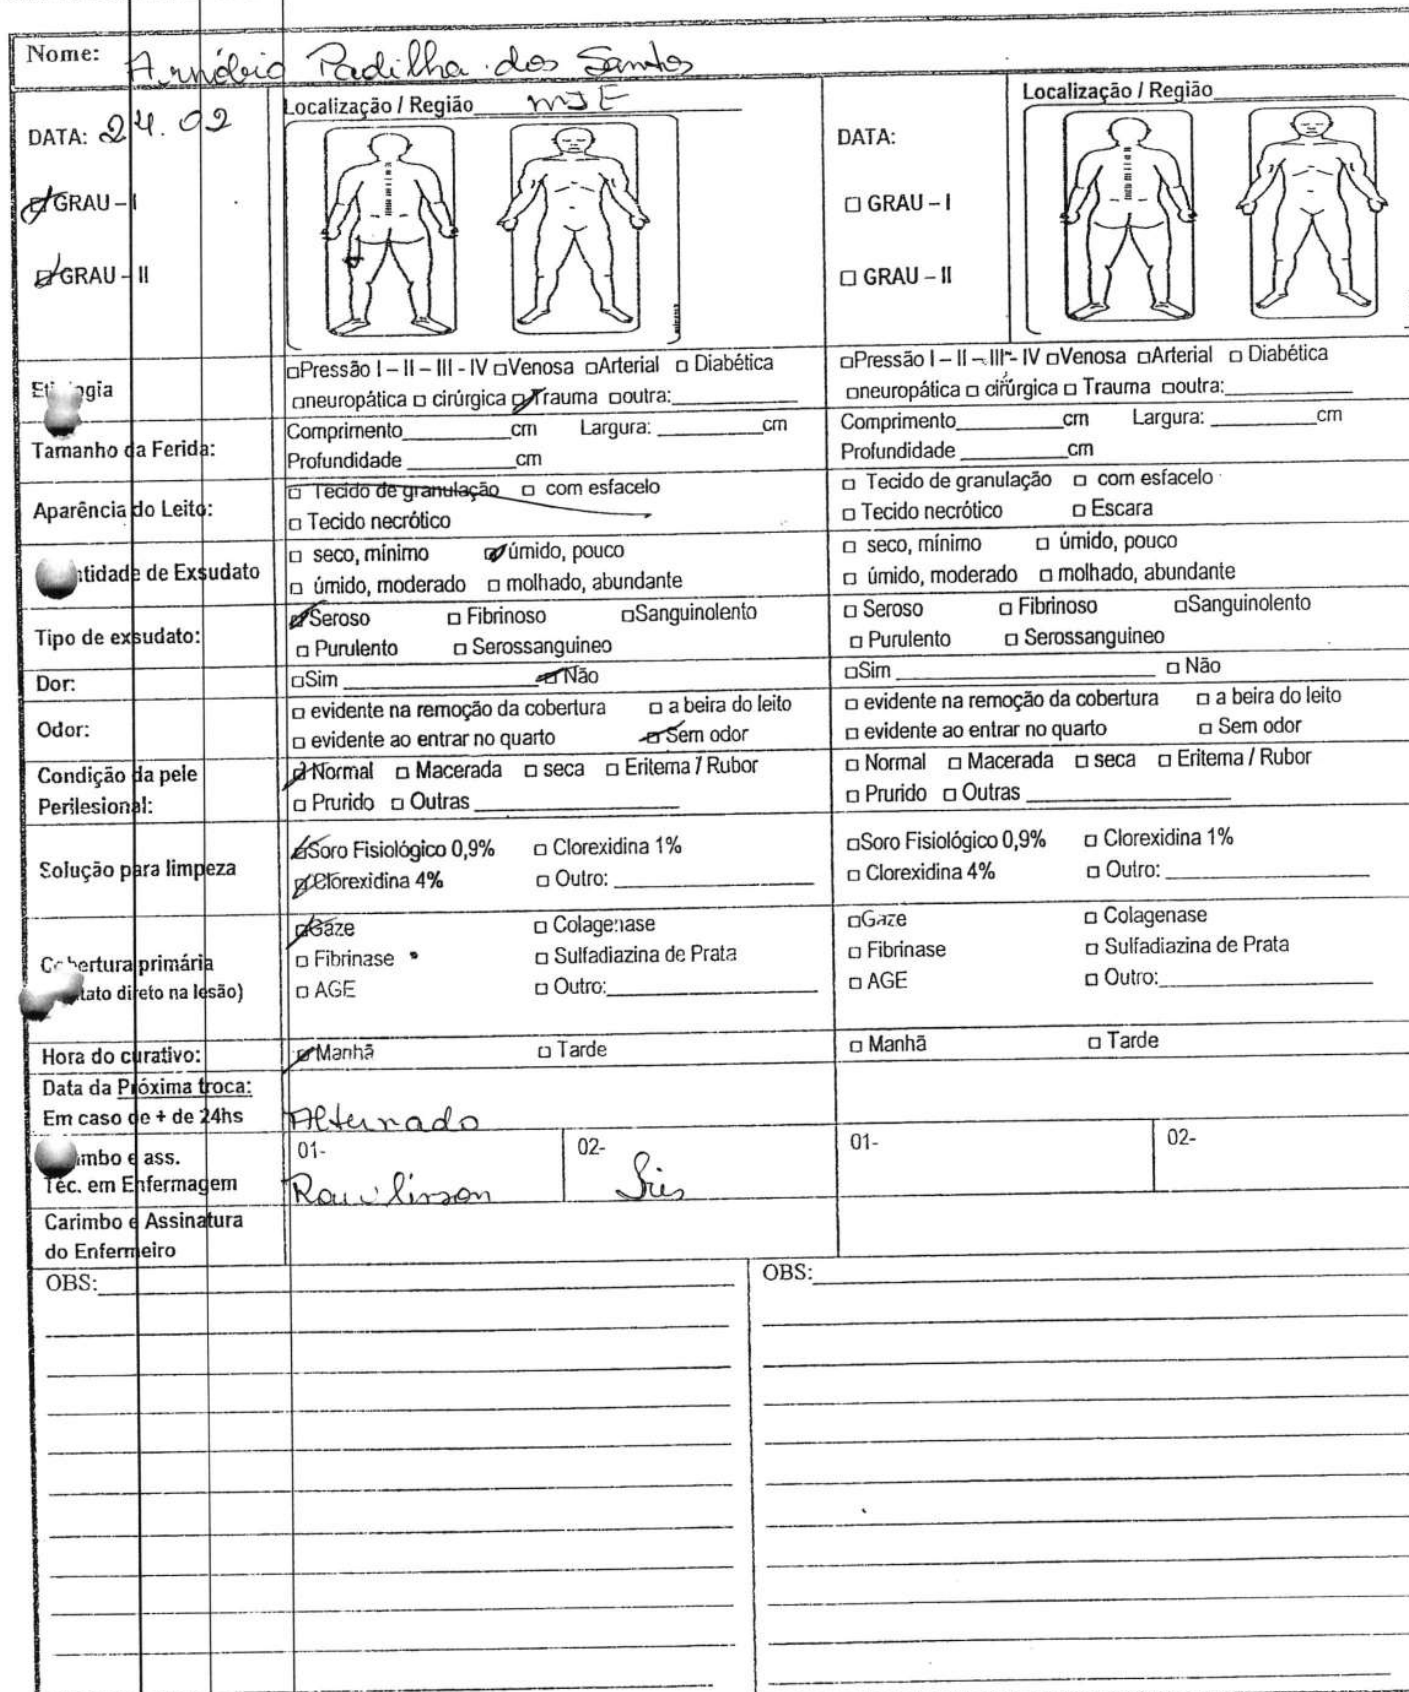 Nome: Arnóbio Padilha dos Santos
DATA: 24.02
GRAU – I
GRAU – II
Localização / Região MIE
DATA:
□ GRAU – I
□ GRAU – II
Localização / Região
□Pressão I – II – III - IV □Venosa □Arterial □ Diabética
□neuropática □ cirúrgica □Trauma □outra:
□Pressão I – II – III - IV □Venosa □Arterial □ Diabética
□neuropática □ cirúrgica □ Trauma □outra:
Tamanho da Ferida:
Comprimento cm Largura: cm
Profundidade cm
Comprimento cm Largura: cm
Profundidade cm
Aparência do Leito:
□ Tecido de granulação □ com esfacelo
□ Tecido necrótico
□ Tecido de granulação □ com esfacelo
□ Tecido necrótico □ Escara
de Exsudato
□ seco, mínimo □ úmido, pouco
□ úmido, moderado □ molhado, abundante
□ seco, mínimo □ úmido, pouco
□ úmido, moderado □ molhado, abundante
Tipo de exsudato:
□ Seroso □ Fibrinoso □Sanguinolento
□ Purulento □ Serossanguineo
□ Seroso □ Fibrinoso □Sanguinolento
□ Purulento □ Serossanguineo
Dor:
□Sim □ Não
□Sim □ Não
Odor:
□ evidente na remoção da cobertura □ a beira do leito
□ evidente ao entrar no quarto □ Sem odor
□ evidente na remoção da cobertura □ a beira do leito
□ evidente ao entrar no quarto □ Sem odor
Condição da pele
Perilesional:
□ Normal □ Macerada □ seca □ Eritema / Rubor
□ Prurido □ Outras
□ Normal □ Macerada □ seca □ Eritema / Rubor
□ Prurido □ Outras
Solução para limpeza
□Soro Fisiológico 0,9% □ Clorexidina 1%
□ Clorexidina 4% □ Outro:
□Soro Fisiológico 0,9% □ Clorexidina 1%
□ Clorexidina 4% □ Outro:
primária
direto na lesão)
□Gaze □ Colagenase
□ Fibrinase □ Sulfadiazina de Prata
□ AGE □ Outro:
□Gaze □ Colagenase
□ Fibrinase □ Sulfadiazina de Prata
□ AGE □ Outro:
Hora do curativo:
□ Manhã □ Tarde
□ Manhã □ Tarde
Data da Próxima troca:
Em caso de + de 24hs
Alternado
e ass.
Téc. em Enfermagem
01-
Rawlinson
02-
01-
02-
Carimbo e Assinatura
do Enfermeiro
OBS:
OBS: